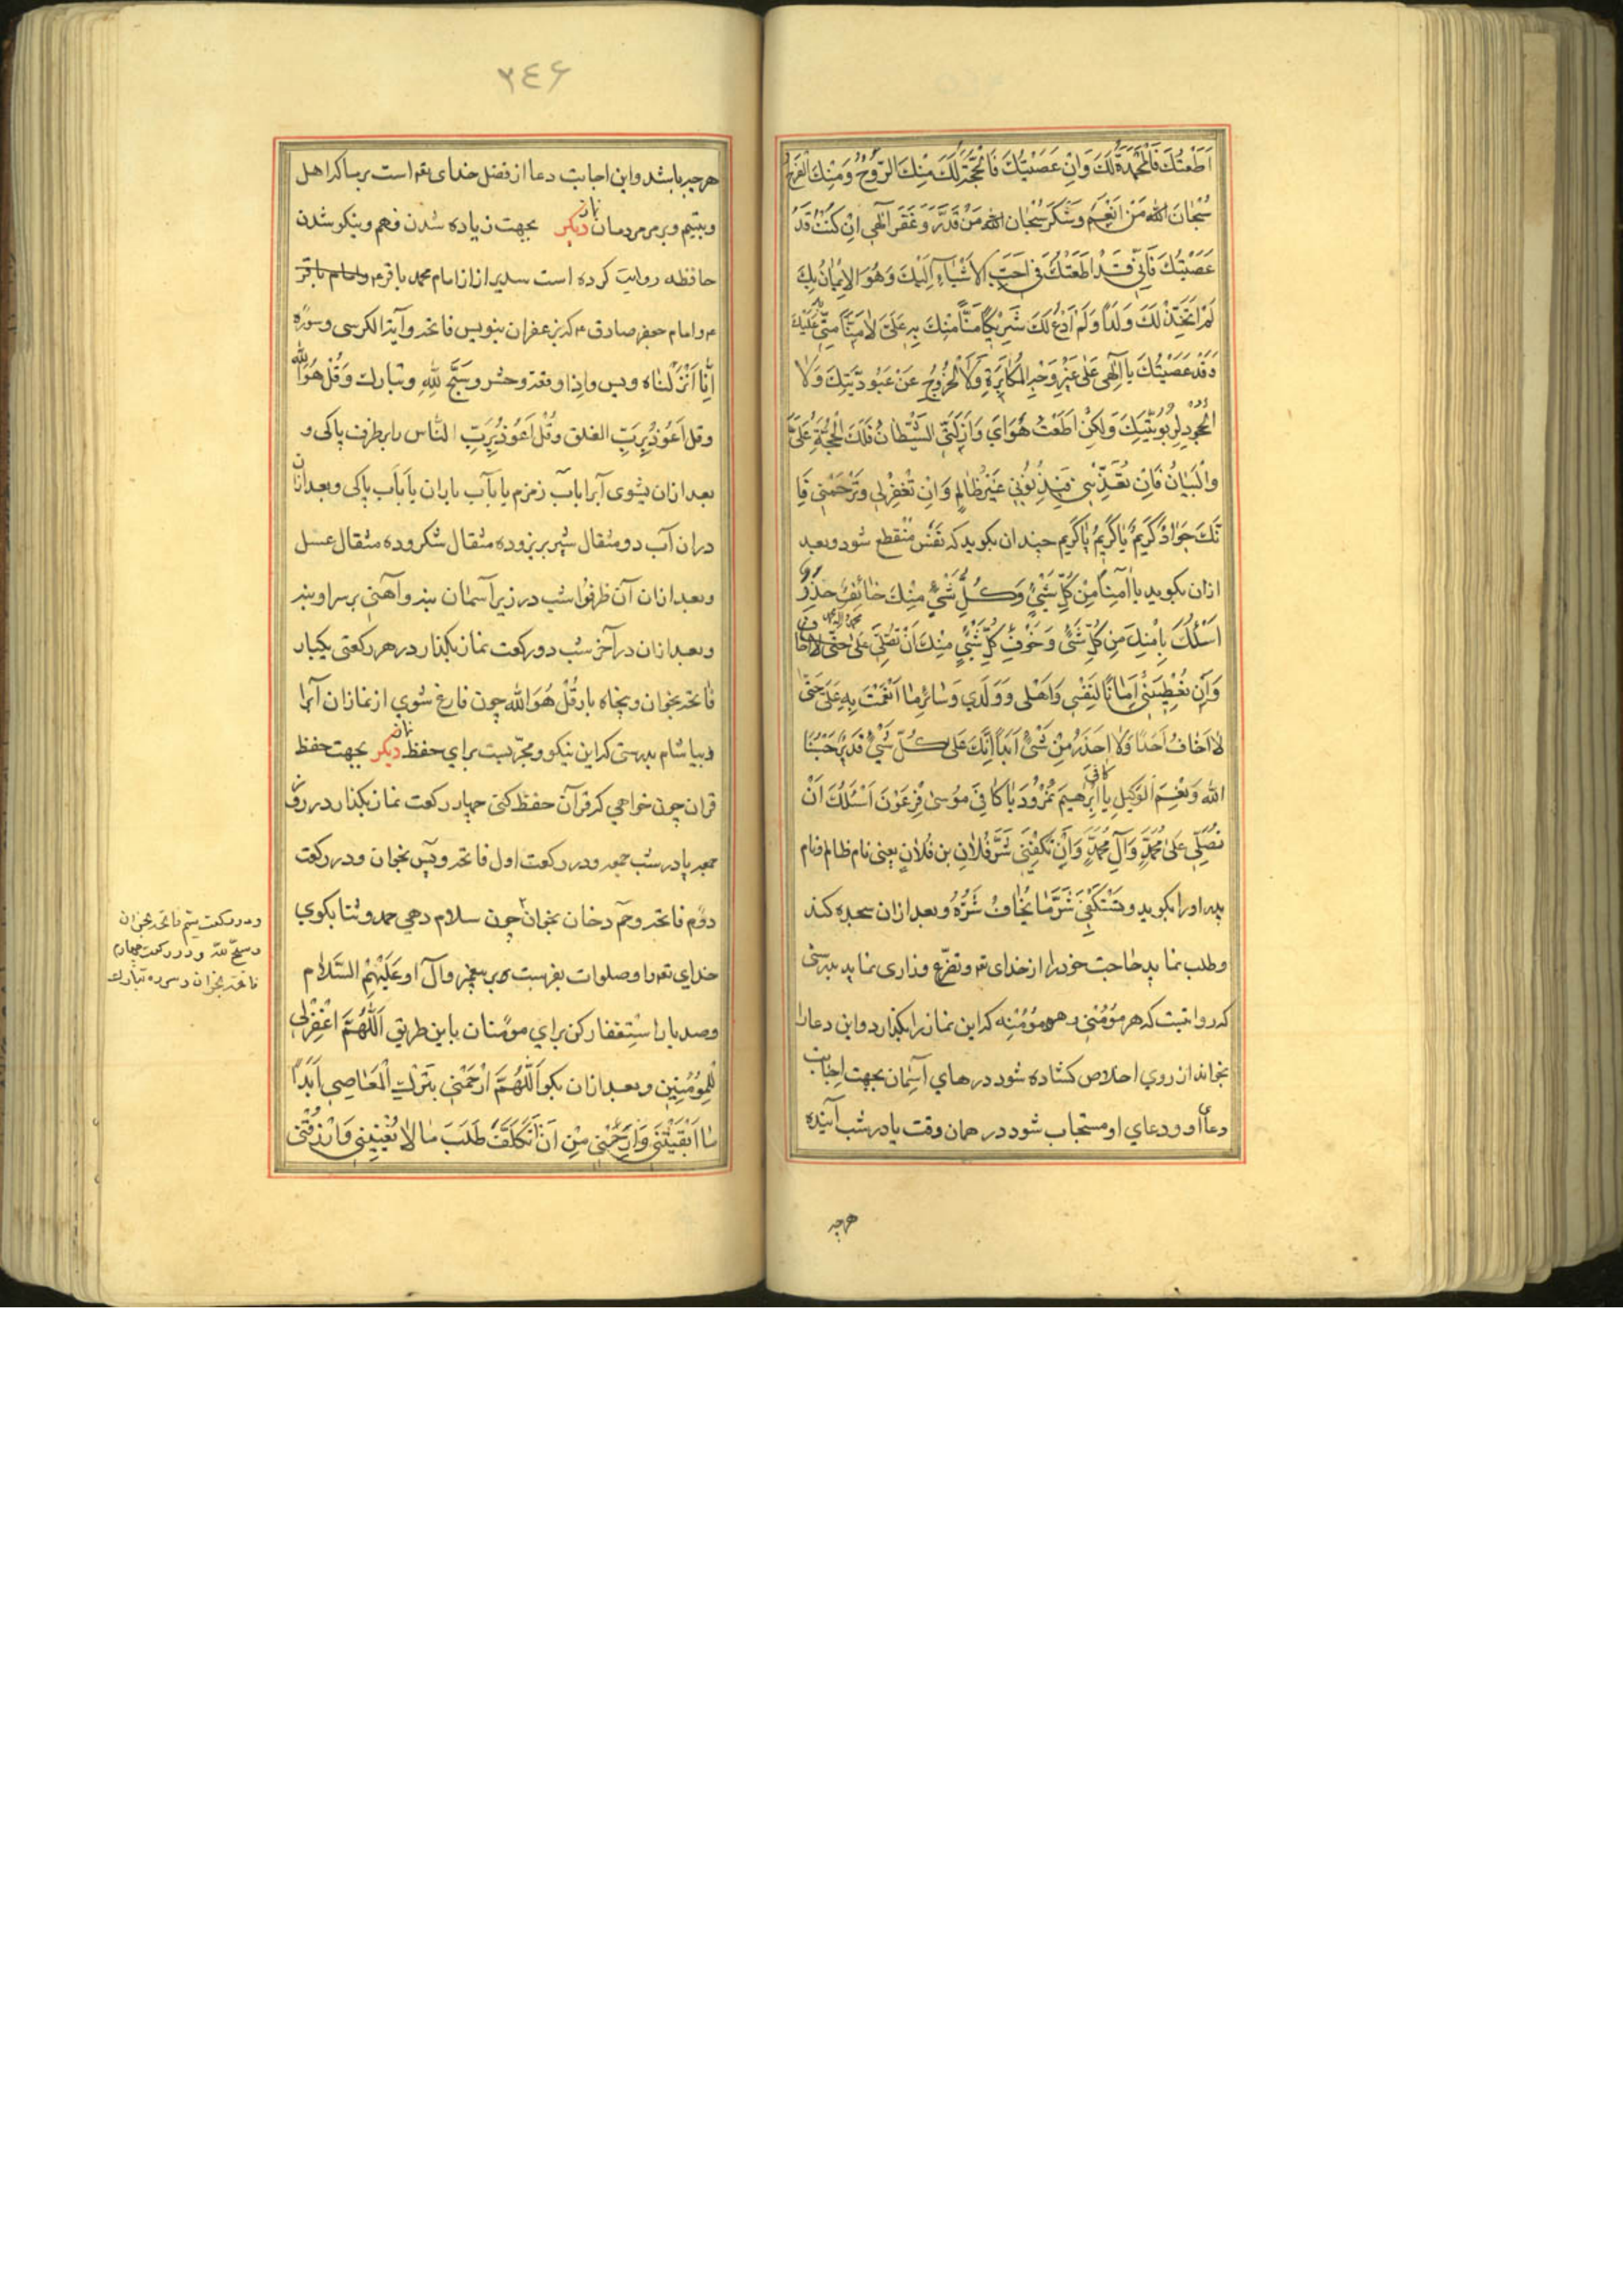 اَطَعْتُكَ فَالْمَحْمَدَةُ لَكَ وَاِنْ عَصَيْتُكَ فَالْحُجَّةُ لَكَ مِنْكَ الرَّوْحُ وَمِنْكَ الْفَرَجُ
سُبْحَانَ اللهِ مَنْ اَنْعَمَ وَشَكَرَ سُبْحَانَ اللهِ مَنْ قَدَّرَ وَغَفَرَ اِلٰهِی اِنْ كُنْتُ قَدْ
عَصَيْتُكَ فَاِنّی قَدْ اَطَعْتُكَ فی اَحَبِّ الاَشْيَاءِ اِلَيْكَ وَهُوَ الاِيْمَانُ بِكَ
لَمْ اَتَّخِذْ لَكَ وَلَدًا وَلَمْ اَدْعُ لَكَ شَرِيكًا مَنًّا مِنْكَ بِهِ عَلَیَّ لا مَنًّا مِنّی عَلَيْكَ
وَقَدْ عَصَيْتُكَ يَا اِلٰهی عَلیٰ غَيْرِ وَجْهِ الْمُكَابَرَةِ وَلاَ الْخُرُوجِ عَنْ عُبُودِيَّتِكَ وَلاَ
الْجُحُودِ لِرُبُوبِيَّتِكَ وَلَكِنْ اَطَعْتُ هَوَایَ وَاَزَلَّنِی الشَّيْطَانُ فَلَكَ الْحُجَّةُ عَلَیَّ
وَالْبَيَانُ فَاِنْ تُعَذِّبْنی فَبِذُنُوبی غَيْرُ ظَالِمٍ وَاِنْ تَغْفِرْ لی وَتَرْحَمْنی فَاِ
نَّكَ جَوَادٌ كَرِيمٌ يَا كَرِيمُ يَا كَرِيم چندان بگوید که نفس منقطع شود و بعد
ازان بگوید یا آمِنًا مِنْ كُلِّ شَیْءٍ وَكُلُّ شَیْءٍ مِنْكَ خَائِفٌ حَذِرٌ
اَسْئَلُكَ بِاَمْنِكَ مِنْ كُلِّ شَیْءٍ وَخَوْفِ كُلِّ شَیْءٍ مِنْكَ اَنْ تُصَلِّیَ عَلیٰ
وَاَنْ تُعْطِيَنی اَمَانًا لِنَفْسی وَاَهْلی وَوَلَدی وَسَائِرِ مَا اَنْعَمْتَ بِهِ عَلَیَّ حَتّیٰ
لا اَخَافُ اَحَدًا وَلا اَحْذَرُ مِنْ شَیْءٍ اَبَدًا اِنَّكَ عَلیٰ كُلِّ شَیْءٍ قَدِيرٌ حَسْبُنَا
اللهُ وَنِعْمَ الْوَكِيلُ يَا كافی اِبْرٰهِيمَ نُمْرُودَ يَا كَافِیَ مُوسیٰ فِرْعَوْنَ اَسْئَلُكَ اَنْ
تُصَلِّیَ عَلیٰ مُحَمَّدٍ وَآلِ مُحَمَّدٍ وَاَنْ تَكْفِيَنی شَرَّ فُلاٰنِ بن فُلاٰنٍ یعنی نام ظالم و نام
پدر او را بگوید و یَسْتَكْفی شَرَّ مَا يُخَافُ شَرُّهُ و بعد ازان سجده کند
و طلب نماید حاجت خود را از خدای تع و تضرّع و زاری نماید بدرستی
که روایتست که هر مؤمنی و هر مؤمنه که این نماز را بگذارد و این دعا را
بخواند از روی اخلاص کشاده شود درهای آسمان بجهت اجابت
دعای او و دعای او مستجاب شود در همان وقت یا در شب آینده
هرچه
۳٤۶
هرچه باشد و این اجابت دعا از فضل خدای تع است بر ما که اهل
و یتیم و بر مردمان نماز دیگر بجهت زیاده شدن فهم و نیکو شدن
حافظه روایت کرده است سدیر از امام محمد باقر ع و امام باقر
ع و امام جعفر صادق ع که بزعفران بنویس فاتحه و آیة الکرسی و سوره
اِنَّا اَنْزَلْنَاهُ و یس و اذا وقعة و حشر و سَبَّحَ لِلّهِ و تبارك وَقُلْ هُوَ اللّٰه
و قل اَعُوذُ بِرَبِّ الفلق وَقُلْ اَعُوذُ بِرَبِّ الناس را بر ظرف پاکی و
بعد ازان بشوی آنرا بآب زمزم یا بآب باران یا بآب پاکی و بعد ازان
دران آب دو مثقال شیر بریز و ده مثقال شکر و ده مثقال عسل
و بعد ازان آن ظرفرا شب در زیر آسمان بنه و آهنی بر سر او بنه
و بعد ازان در آخر شب دو رکعت نماز بگذار در هر رکعتی یکبار
فاتحه بخوان و پنجاه بار قُلْ هُوَ الله چون فارغ شوی از نماز ان آبرا
و بیاشام بدرستی که این نیکو و مجرّبست برای حفظ نماز دیگر بجهت حفظ
قران چون خواهی که قرآن حفظ کنی چهار رکعت نماز بگذار در روز
جمعه یا در شب جمعه و در رکعت اول فاتحه و یس بخوان و در رکعت
دوّم فاتحه و حم دخان بخوان چون سلام دهی حمد و ثنا بگوی
خدای تع را و صلوات بفرست بر پیغمبر و آل او عَلَيْهِمُ السَّلام
و صد بار اِسْتِغفار کن برای مؤمنان باین طریق اَللّٰهُمَّ اغْفِرْ لی
لِلْمُؤْمِنِين و بعد ازان بگو اَللّٰهُمَّ ارْحَمْنی بِتَرْكِ الْمَعَاصِی اَبَدًا
مَا اَبْقَيْتَنی وَارْحَمْنی مِنْ اَنْ اَتَكَلَّفَ طَلَبَ مَا لا يَعْنِينی وَارْزُقْنی
و در رکعت سیّم فاتحه بخوان
و سبّح لله و در رکعت چهارم
فاتحه بخوان و سوره تبارك